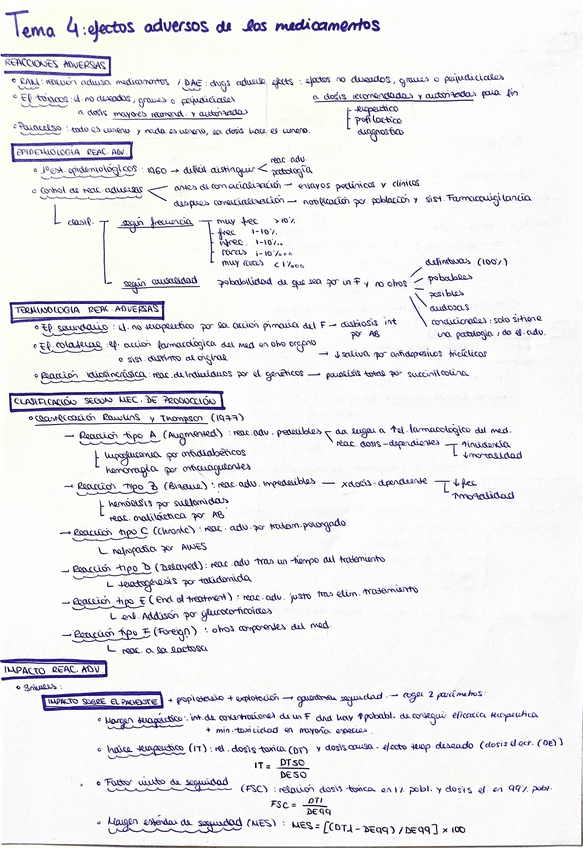 Tema 4: efectos adversos de los medicamentos
REACCIONES ADVERSAS
° RAM: reacción adversa medicamentos / DAE: drugs adverse efects: efectos no deseados, graves o perjudiciales
° Ef. tóxicos: ef. no deseados, graves o perjudiciales
a dosis recomendadas y autorizadas para fin
a dosis mayores recomend. y autorizadas
terapeutico
profilactico
diagnostico
° Paracelso: todo es veneno y nada es veneno, la dosis hace el veneno.
EPIDEMIOLOGIA REAC. ADV
° 1ºest. epidemiológicos: 1960 → dificil distinguir
reac adv.
patología
° Control de reac. adversas
antes de comercialización → ensayos preclinicos y clínicos
despues comercialización → notificación por población y sist. Farmacovigilancia
clasif.
según frecuencia
muy frec >10%
frec 1-10%
infrec. 1-10‰
raras
muy raras
según causalidad
probabilidad de que sea por un F y no otros
definitivas (100%)
probables
posibles
dudosas
condicionales: solo si tiene
una patología, da ef. adv.
TERMINOLOGIA REAC. ADVERSAS
° Ef. secundario: ef. no terapeutico por la acción primaria del F → disbiosis int
por AB
° Ef. colateral: ef. acción farmacológica del med en otro organo
o sist. distinto al original
→ ↓saliva por antidepresivos tricíclicos
° Reacción idiosincrásica: reac. de individuos por ef. genéticos → paralisis total por succinilcolina
CLASIFICACIÓN SEGUN MEC. DE PRODUCCIÓN
° clasificación Rawlins y Thompson (1977)
→ Reacción tipo A (Augmented): reac. adv. predecibles
da lugar a ↑ef. farmacológico del med.
reac dosis-dependientes
↑incidencia
↓mortalidad
hipoglucemia por antidiabéticos
hemorragia por anticoagulantes
→ Reacción tipo B (Bizarre): reac. adv. impredecibles → xdosis-dependiente
↓frec
↑mortalidad
hemólisis por sulfamidas
reac. anafiláctica por AB
→ Reacción tipo C (Chronic): reac. adv. por tratam. prolongado
nefropatía por AINES
→ Reacción tipo D (Delayed): reac. adv tras un tiempo del tratamiento
teratogénesis por talidomida
→ Reacción tipo E (End of treatment): reac. adv. justo tras elim. tratamiento
enf. Addison por glucocorticoides
→ Reacción tipo F (Foreign): otros componentes del med.
reac. a la lactosa
IMPACTO REAC. ADV
° 3 niveles:
IMPACTO SOBRE EL PACIENTE
→ garantizar seguridad → coger 2 parámetros:
° Margen terapéutico: int. de concentraciones de un F dnd hay ↑probabl. de conseguir eficacia terapeutica
+ min. toxicidad en mayoría especies.
° Indice terapeutico (IT): rel. dosis toxica (DT) y dosis causa efecto terap deseado (dosis efect. (DE))
IT = DT50 / DE50
° Factor cierto de seguridad (FSC): relación dosis toxica en 1% pobl. y dosis ef. en 99% pobl.
FSC = DT1 / DE99
° Margen estándar de seguridad (MES): MES = [(DT1 - DE99) / DE99] × 100